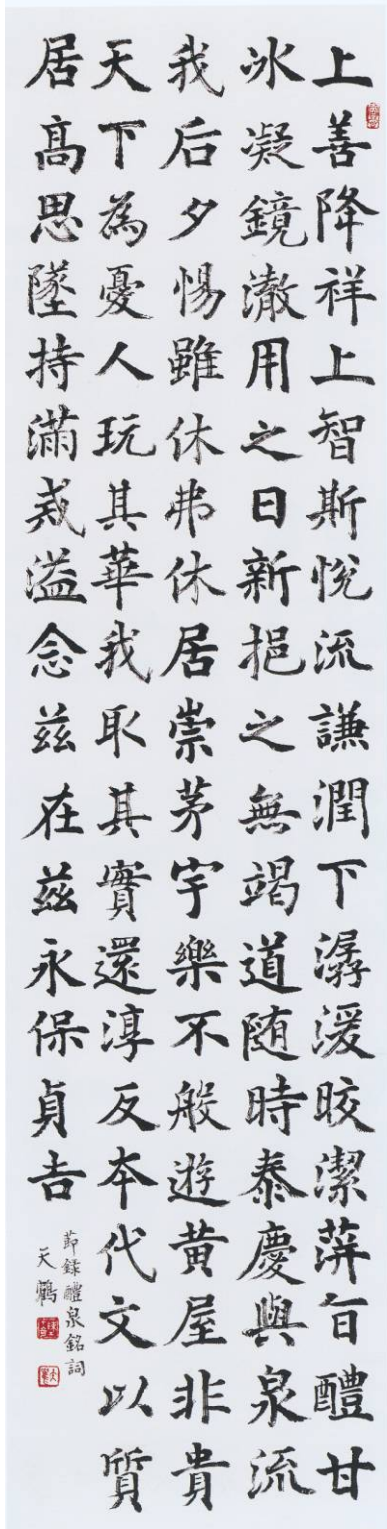 上善降祥上智斯悅流謙潤下潺湲晈潔蓱旨醴甘
冰凝鏡澈用之日新挹之無竭道随時泰慶與泉流
我后夕惕雖休弗休居崇茅宇樂不般遊黃屋非貴
天下為憂人玩其華我取其實還淳反夲代文以質
居髙思墜持滿戒溢念兹在兹永保貞吉
節錄醴泉銘詞
天鶴